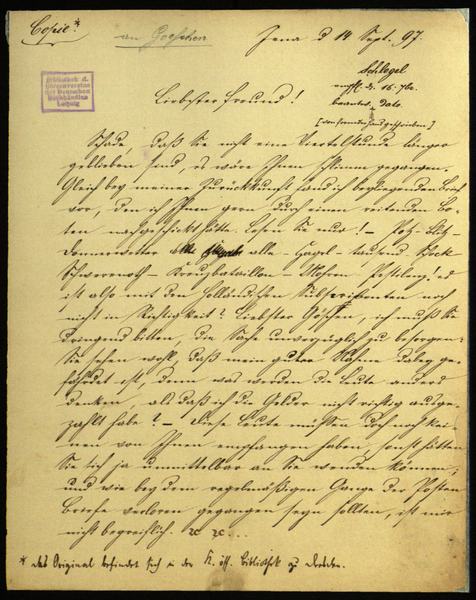 Copie*
an Goeschen
Jena d 14 Sept. 97.
Bibliothek d.
Börsenvereins
der Deutschen
Buchhändler
Leipzig
Schlegel
empf. d. 16. 7br.
beantw. dato.
[von fremder Hand geschrieben]
Liebster Freund!
Schade, daß Sie nicht eine Viertelstunde länger
geblieben sind, es wäre Ihnen schlimm gegangen.
Gleich bey meiner Zurückkunft fand ich beyliegenden Brief
vor, den ich Ihnen gern durch einen reitenden Bo-
ten nachgeschickt hätte. Lesen Sie nur! – Potz-Blitz-
Donnerwetter alle – Hagel – tausend Sack
Schwerenoth – Kreuzbataillon – Mohren Pestileny! es
ist also mit den Holländischen Subscribenten noch
nicht in Richtigkeit? Liebster Göschen, ich muß Sie
dringend bitten, die Sache unverzüglich zu besorgen.
Sie sehen wohl, daß mein guter Nahme dabey ge-
fährdet ist, denn was werden die Leute anders
denken, als daß ich die Gelder nicht richtig ausge-
zahlt habe? – Diese Leute müssen doch noch kei-
nen von Ihnen empfangen haben, sonst hätten
Sie sich ja unmittelbar an Sie wenden können,
und wie bey dem regelmäßigen Gange der Posten
Briefe verloren gegangen seyn sollten, ist mir
nicht begreiflich. ꝛc ꝛc....
* das Original befindet sich in der K. öff. Bibliothek zu Dresden.